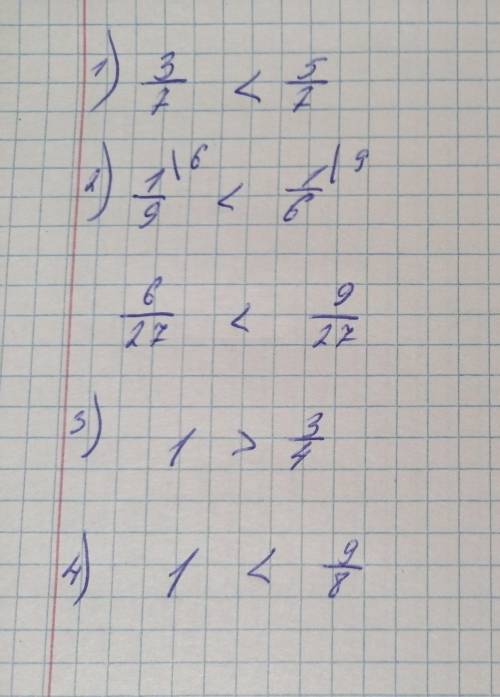 1) 3/7 < 5/7
2) 1/9 \6 < 1/6 \9
6/27 < 9/27
3) 1 > 3/4
4) 1 < 9/8